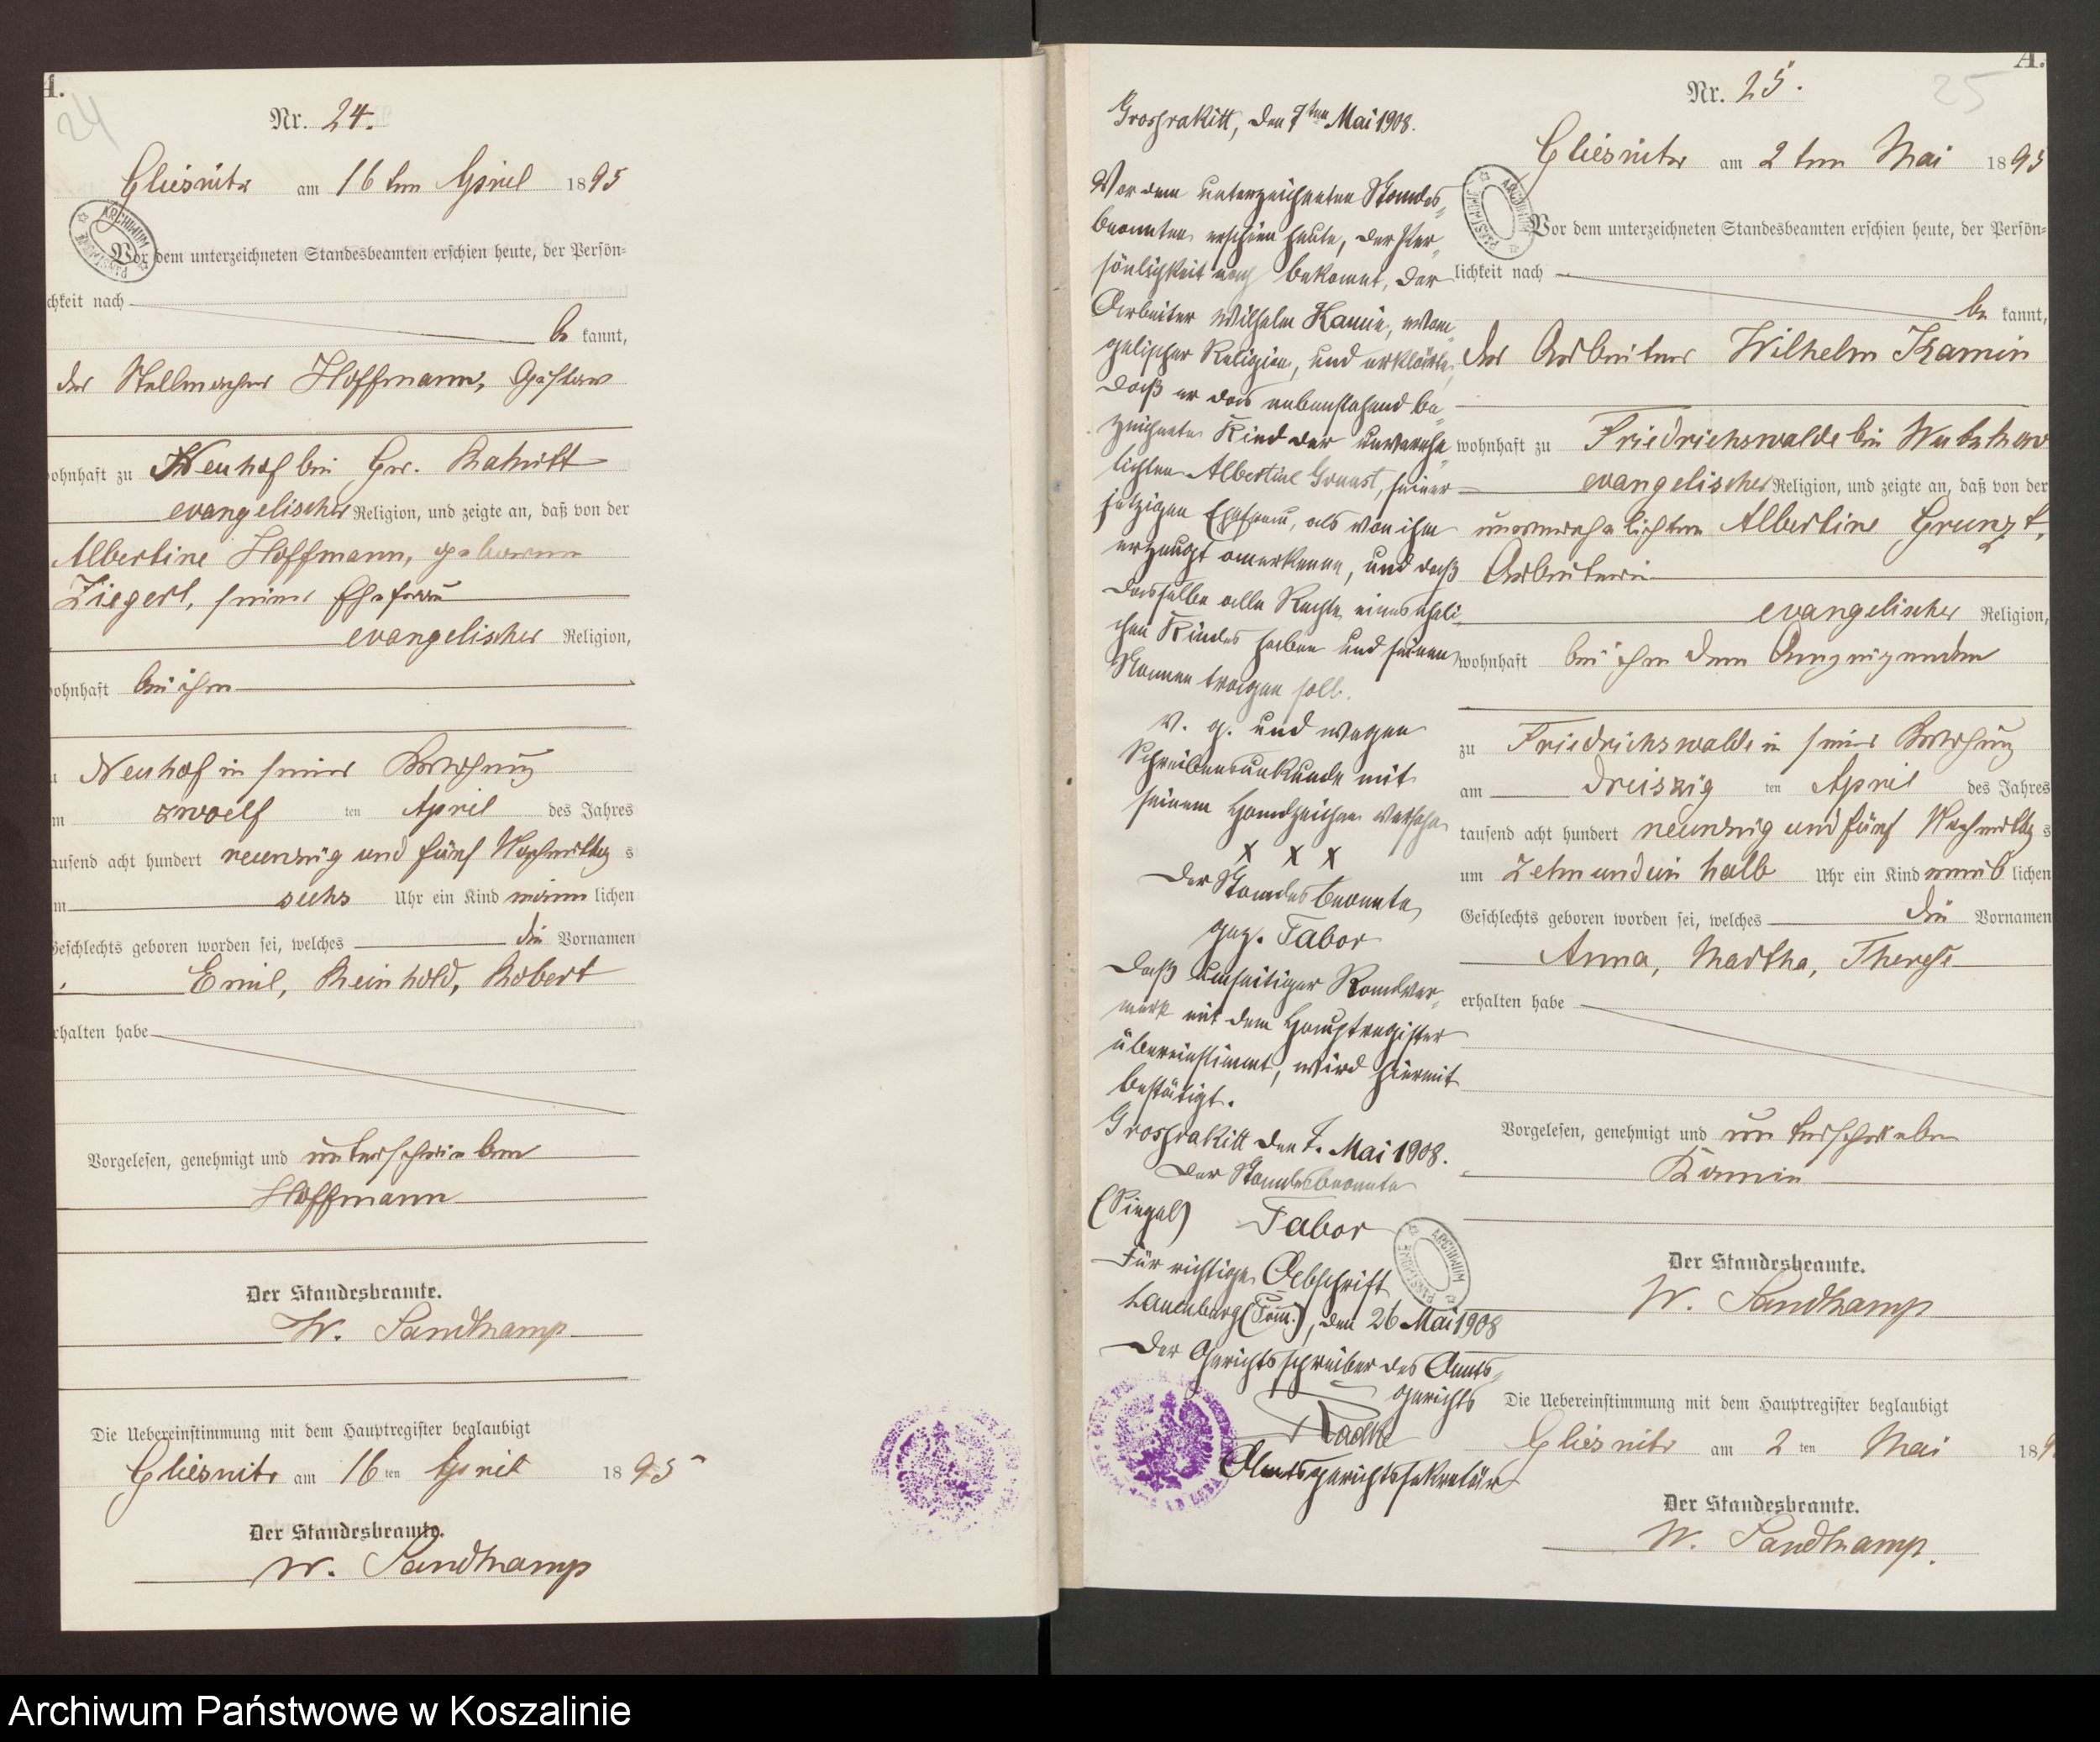 A.
24
Nr. 24.
Gliesnitz am 16ten April 1895
Vor dem unterzeichneten Standesbeamten erschien heute, der Persön-
chkeit nach
be kannt,
der Stellmacher Hoffmann, Gustav
ohnhaft zu Neuhof bei Gr. Rakitt
evangelischer Religion, und zeigte an, daß von der
Albertine Hoffmann, geborene
Ziegert, seiner Ehefrau
evangelischer Religion,
ohnhaft bei ihm
Neuhof in seiner Wohnung
m zwoelf ten April des Jahres
ausend acht hundert neunzig und fünf Nachmittag s
m sechs Uhr ein Kind männ lichen
Geschlechts geboren worden sei, welches die Vornamen
Emil, Reinhold, Robert
rhalten habe
Vorgelesen, genehmigt und unterschrieben
Hoffmann
Der Standesbeamte.
W. Sandkamp
Die Uebereinstimmung mit dem Hauptregister beglaubigt
Gliesnitz am 16 ten April 18 95
Der Standesbeamte.
W. Sandkamp
Grosrakitt, den 7ten Mai 1908.
Vor dem unterzeichneten Standes-
beamten erschien heute, der Per-
sönlichkeit nach bekannt, der
Arbeiter Wilhelm Kamin, evan-
gelischer Religion, und erklärte,
daß er das nebenstehend be-
zeichnete Kind der unverehe-
lichten Albertine Grunst, seiner
jetzigen Ehefrau, als von ihm
erzeugt anerkenne, und daß
dasselbe alle Rechte eines eheli-
chen Kindes haben und seinen
Namen tragen soll.
v. g. und wegen
Schreibensunkunde mit
seinem Handzeichen versehen
X X X
Der Standesbeamte
gez. Tabor
Daß umseitiger Randver-
merk mit dem Hauptregister
übereinstimmt, wird hiermit
bestätigt.
Grosrakitt den 7. Mai 1908.
Der Standesbeamte
(Siegel) Tabor
Für richtige Abschrift
Lauenburg (Pom.), den 26 Mai 1908
Der Gerichtsschreiber des Amts-
gerichts
Radtke
Amtsgerichtssekretär
A.
25
Nr. 25.
Gliesnitz am 2ten Mai 1895
Vor dem unterzeichneten Standesbeamten erschien heute, der Persön-
lichkeit nach
be kannt,
der Arbeiter Wilhelm Kamin
wohnhaft zu Friedrichswalde bei Wutzkow
evangelischer Religion, und zeigte an, daß von der
unverehelichten Albertine Grunzt,
Arbeiterin
evangelischer Religion,
wohnhaft bei ihm dem Anzeigenden
zu Friedrichswalde in seiner Wohnung
am dreiszig ten April des Jahres
tausend acht hundert neunzig und fünf Nachmittag s
um zehn und ein halb Uhr ein Kind weib lichen
Geschlechts geboren worden sei, welches die Vornamen
Anna, Martha, Therese
erhalten habe
Vorgelesen, genehmigt und unterschrieben
Kamin
Der Standesbeamte.
W. Sandkamp
Die Uebereinstimmung mit dem Hauptregister beglaubigt
Gliesnitz am 2 ten Mai 189
Der Standesbeamte.
W. Sandkamp.
Archiwum Państwowe w Koszalinie